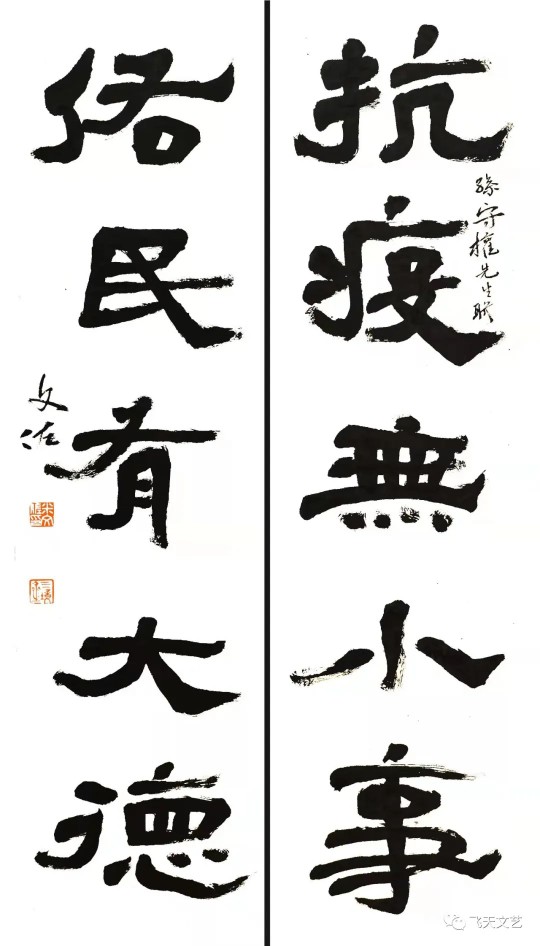 抗疫無小事
守權先生联
佑民有大德
文佐
飞天文艺